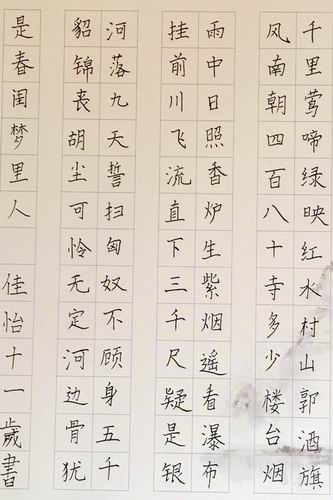 千里莺啼绿映红水村山郭酒旗
风南朝四百八十寺多少楼台烟
雨中日照香炉生紫烟遥看瀑布
挂前川飞流直下三千尺疑是银
河落九天誓扫匈奴不顾身五千
貂锦丧胡尘可怜无定河边骨犹
是春闺梦里人 佳怡十一歲書